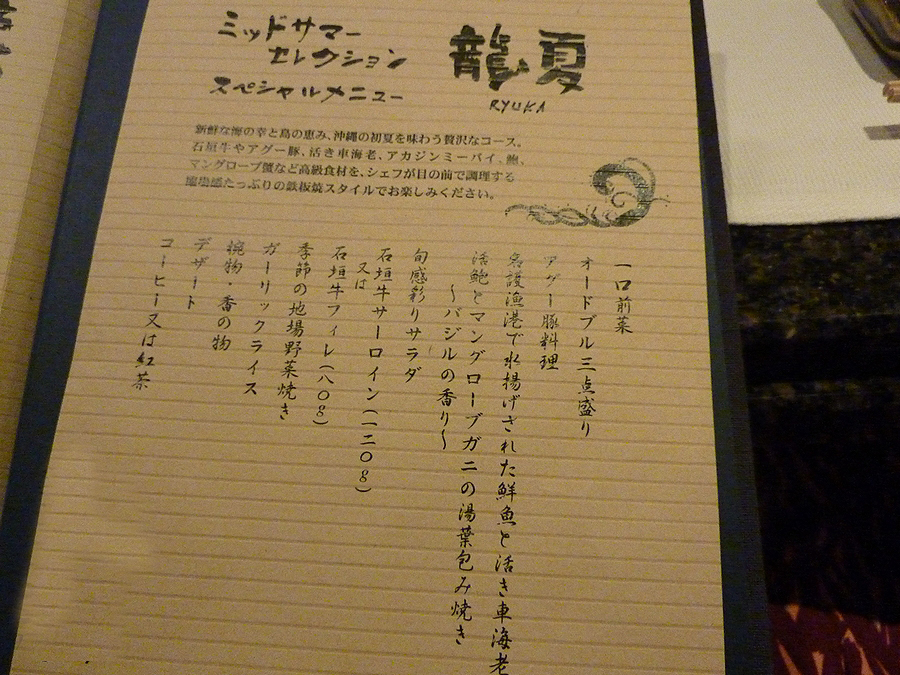 ミッドサマー
セレクション
スペシャルメニュー
龍夏
RYUKA
新鮮な海の幸と島の恵み、沖縄の初夏を味わう贅沢なコース。
石垣牛やアグー豚、活き車海老、アカジンミーバイ、鮑、
マングローブ蟹など高級食材を、シェフが目の前で調理する
臨場感たっぷりの鉄板焼スタイルでお楽しみください。
一口前菜
オードブル三点盛り
アグー豚料理
名護漁港で水揚げされた鮮魚と活き車海老
活鮑とマングローブガニの湯葉包み焼き
〜バジルの香り〜
旬感彩りサラダ
石垣牛サーロイン(一二〇g)
又は
石垣牛フィレ(八〇g)
季節の地場野菜焼き
ガーリックライス
椀物・香の物
デザート
コーヒー又は紅茶